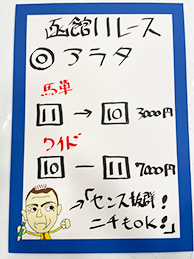 函館11レース
◎アラタ
馬単
11→10 3000円
ワイド
10-11 7000円
→「センス抜群!
ニチもOK!」